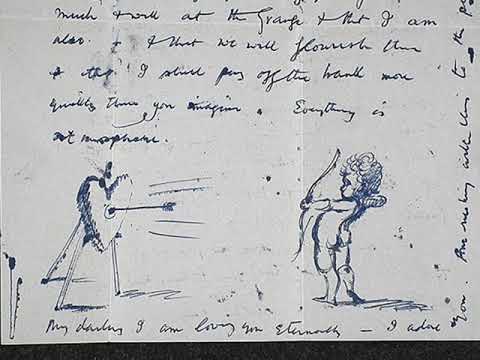 much & well at the Grange & that I am
also. — & that we will flourish then
& I shall pay off the bank more
quickly than you imagine. Everything is
atmospheric.
My darling I am loving you eternally — I adore
you. Am sending with this to the